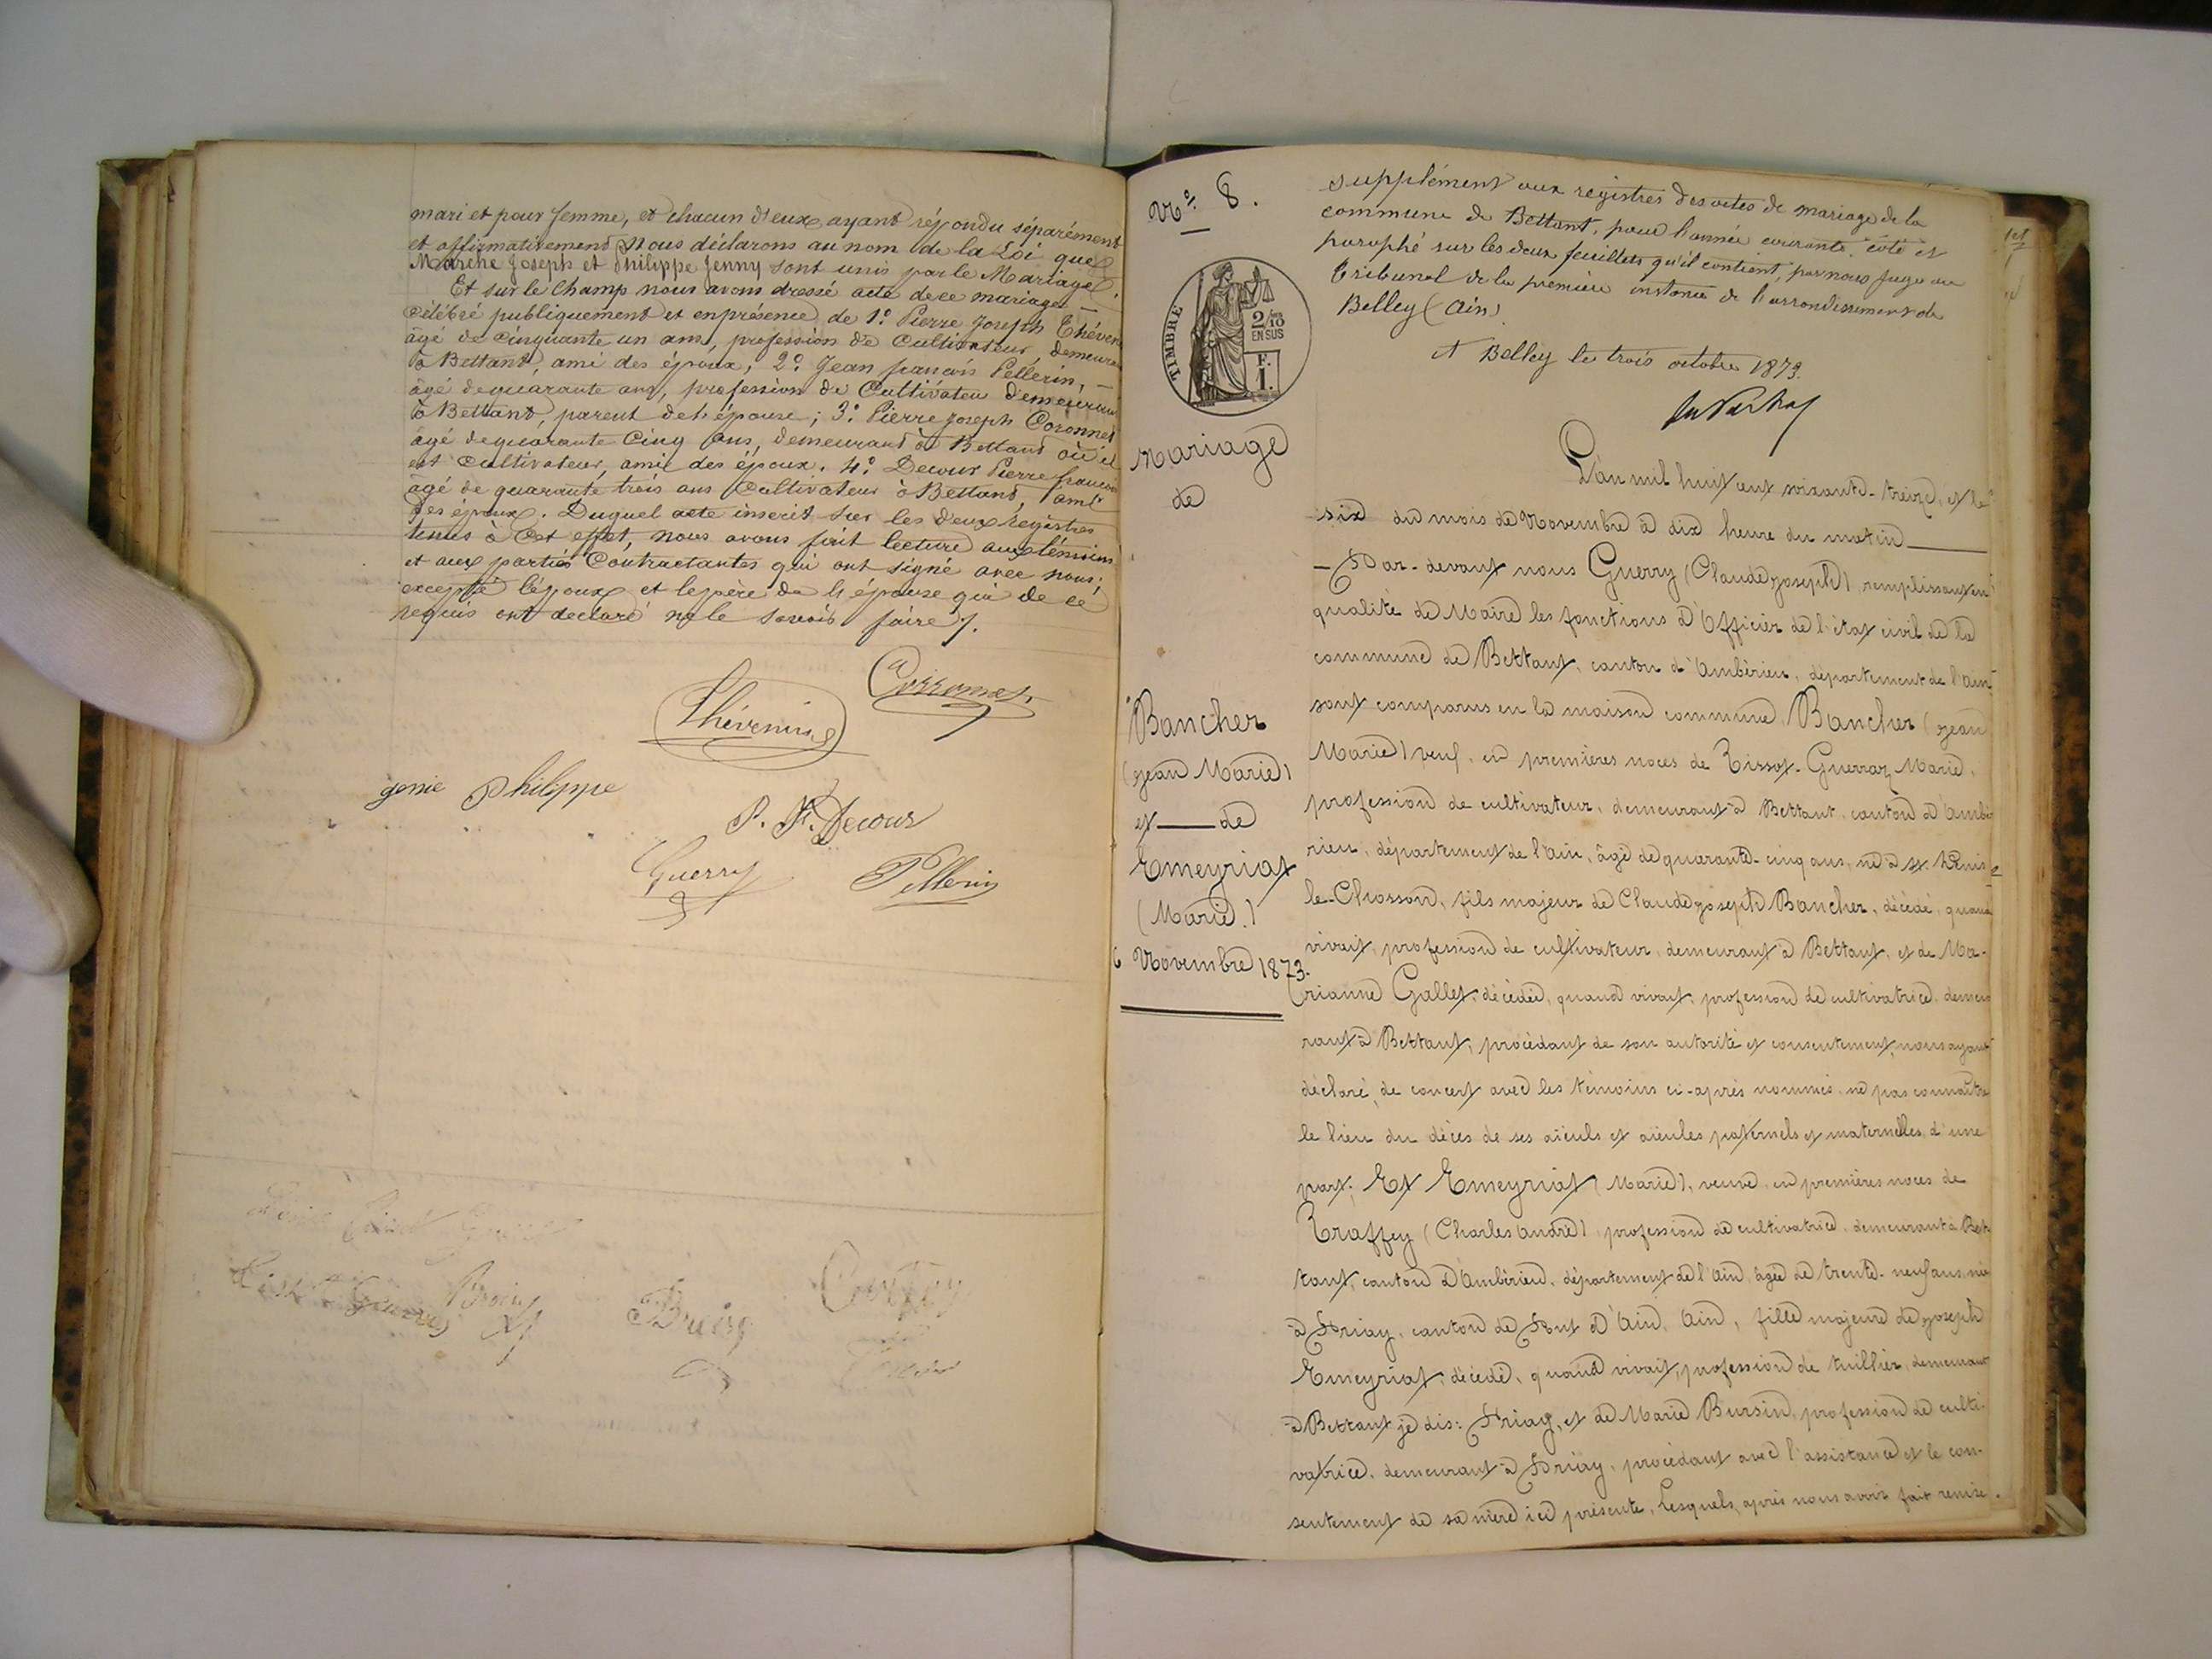 mari et pour femme, et chacun d'eux ayant répondu séparément
et affirmativement Nous déclarons au nom de la Loi que
Marche Joseph et Philippe Jenny sont unis par le Mariage.
Et sur le champ nous avons dressé acte de ce mariage
célébré publiquement et en présence de 1º Pierre Joseph Théven
âgé de cinquante un ans, profession de Cultivateur, demeura
à Bettant, ami des époux; 2º Jean françois Pellerin, –
âgé de quarante ans, profession de Cultivateu demeurant
à Bettant, parent de l'épouse; 3º Pierre Joseph Coronnet
âgé de quarante Cinq ans, demeurant à Bettant où il
est Cultivateur, ami des époux. 4º Decour Pierre françois
âgé de quarante trois ans Cultivateur à Bettant, ami
des époux. Duquel acte inscrit sur les deux registres
tenus à cet effet, nous avons fait lecture aux témoins
et aux parties Contractantes qui ont signé avec nous,
excepté l'époux et le père de l'épouse qui de ce
requis ont declaré ne le savoir faire /.
Coronnet
Thévenin
genie Philippe
P. F. Decour
Guerry
Pellerin
Nº 8.
supplément aux registres des actes de mariage de la
commune de Bettant, pour l'année courante, coté et
paraphé sur les deux feuillets qu'il contient, par nous Juge au
Tribunal de la première instance de l'arrondissement de
Belley (Ain)
A Belley le trois octobre 1873.
1er
TIMBRE
2/10
EN SUS
F.
1.
Mariage
de
Bancher
(Jean Marie)
et — de
Emeyriat
(Marie.)
6 Novembre 1873.
L'an mil huit cent soixante-treize, et le
six du mois de Novembre à dix heure du matin —
– Par-devant nous Guerry (Claude Joseph) remplissant en
qualité de Maire les fonctions d'Officier de l'état civil de la
commune de Bettant, canton d'Ambérieu, département de l'Ain
sont comparus en la maison commune, Bancher (Jean
Marie) veuf, en premières noces de Tissot-Guerraz Marie,
profession de cultivateur, demeurant à Bettant, canton d'Ambé
rieu, département de l'Ain, âgé de quarante-cinq ans, né à St. Denis
le-Chosson, fils majeur de Claude Joseph Bancher, décédé, quand
vivait, profession de cultivateur, demeurant à Bettant, et de Ma-
rianne Gallet, décédée, quand vivait, profession de cultivatrice, demeu
rant à Bettant, procédant de son autorité et consentement, nous ayant
déclaré, de concert avec les témoins ci-après nommés, ne pas connaître
le lieu du décès de ses aïeuls et aïeules paternels et maternelles, d'une
part; Et Emeyriat (Marie), veuve, en premières noces de
Traffey (Charles André) profession de cultivatrice, demeurant à Bet
tant, canton d'Ambérieu, département de l'Ain, âgée de trente-neuf ans, née
à Priay, canton de Pont d'Ain, Ain, fille majeure de Joseph
Emeyriat, décédé, quand vivait, profession de tuillier, demeurant
à Bettant je dis: Priay, et de Marie Bursin, profession de culti-
vatrice, demeurant à Priay, procédant avec l'assistance et le con-
sentement de sa mère ici présente, Lesquels, après nous avoir fait remise